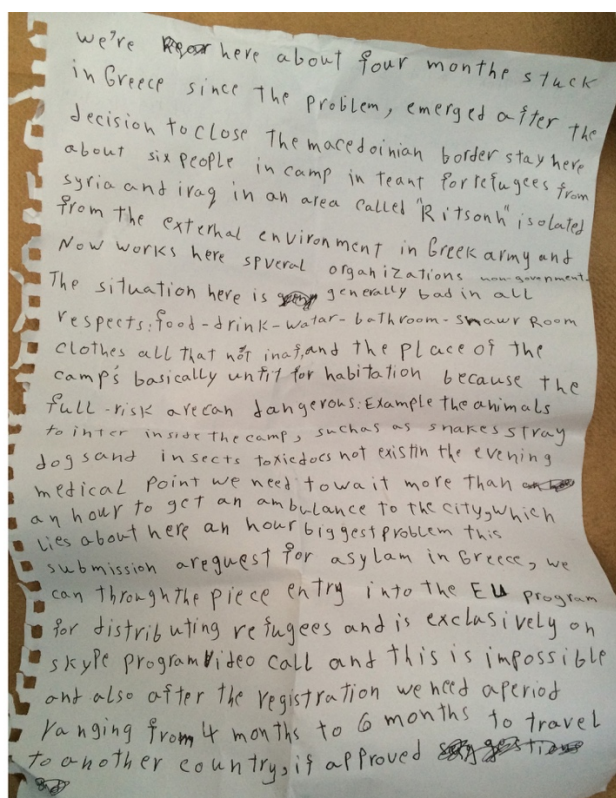 we're here about four monthe stuck
in Greece since the problem, emerged after the
decision to close the macedoinian border stay here
about six people in camp in teant for refugees from
syria and iraq in an area called "Ritsonh" isolated
from the external environment in Greek army and
Now works here speveral organizations non-government.
The situation here is generally bad in all
respects: food-drink-watar-bathroom-shawr Room
clothes all that not inaf, and the place of the
camp's basically unfit for habitation because the
full-risk arecan dangerous: Example the animals
to inter inside the camp, suchas as snakes stray
dogsand insects toxicdocs not existin the evening
medical point we need towait more than
an hour to get an ambulance to the city, which
lies about here an hour biggest problem this
submission areguest for asylam in Greece, we
can throughthe piece entry into the EU program
for distributing refugees and is exclusively on
skype program Video call and this is impossible
and also after the registration we need aperiod
ranging from 4 months to 6 months to travel
to another country, if approved